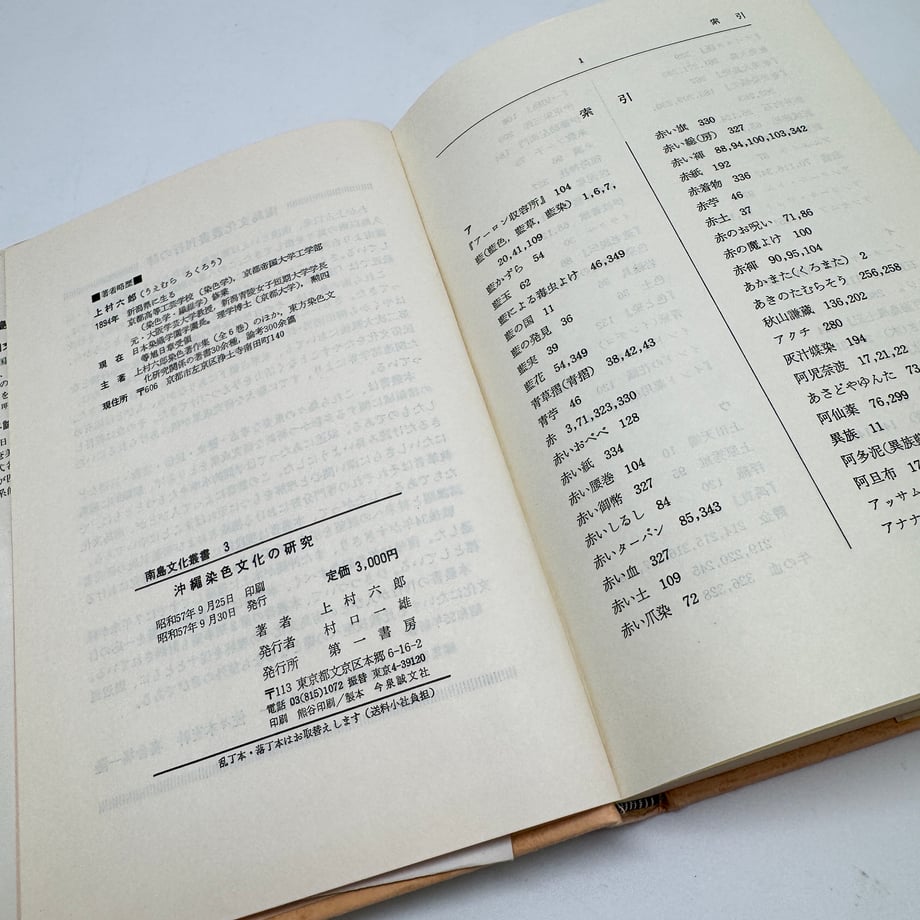 ■著者略歴■
上村六郎(うえむら ろくろう)
1894年 新潟県に生る
京都高等工芸学校(染色学)、京都帝国大学工学部
(染色学・繊維学)修業
元・大阪学芸大学教授 新潟青陵女子短期大学学長
現在 日本染織学園学園長。理学博士(京都大学)、勲四
等旭日章受領
主著 上村六郎染色著作集(全6巻)のほか、東方染色文
化研究関係の著書30余種、論考300余篇
現住所 〒606 京都市左京区浄土寺南田町140
南島文化叢書 3
沖縄染色文化の研究
定価 3,000円
昭和57年9月25日 印刷
昭和57年9月30日 発行
著者 上村六郎
発行者 村口一雄
発行所 第一書房
〒113 東京都文京区本郷 6-16-2
電話 03(815)1072 振替 東京4-39120
印刷 熊谷印刷/製本 今泉誠文社
乱丁本・落丁本はお取替えします(送料小社負担)
索引
1
索引
ア
『アーロン収容所』 104
藍(藍色，藍草，藍染) 1,6,7,
20,41,109
藍かずら 54
藍玉 62
藍による毒虫よけ 46,349
藍の国 11
藍の発見 36
藍実 39
藍花 54,349
青草摺(青摺) 38,42,43
青苧 46
赤 3,71,323,330
赤いおべべ 128
赤い紙 334
赤い腰巻 104
赤い御幣 327
赤いしるし 84
赤いターバン 85,343
赤い血 327
赤い土 109
赤い爪染 72
赤い旗 330
赤い総(房) 327
赤い褌 88,94,100,103,342
赤紙 192
赤着物 336
赤苧 46
赤土 37
赤のお呪い 71,86
赤の魔よけ 100
赤褌 90,95,104
あかまた(くろまた) 2
あきのたむらそう 256,258
秋山謙蔵 136,202
アクチ 280
灰汁媒染 194
阿児奈波 17,21,22
あさどやゆんた 73
阿仙薬 76,299
異族 11
阿多泥(異族
阿旦布 17
アッサム
アナナ